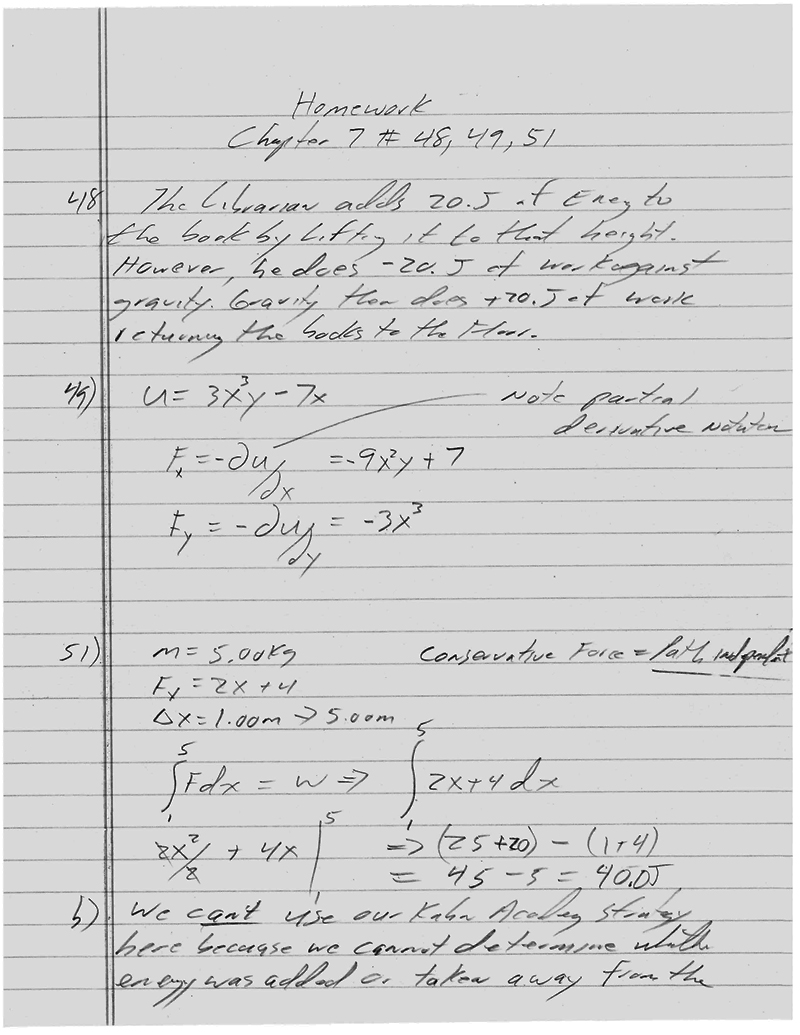 Homework
Chapter 7 # 48, 49, 51
48 The Librarian adds 20. J of Energy to
the book by lifting it to that height.
However, he does -20. J of work against
gravity. Gravity then does +20. J of work
returning the books to the floor.
49) U = 3x³y - 7x Note partial
derivative notation
Fₓ = -∂U/∂x = -9x²y + 7
Fᵧ = -∂U/∂y = -3x³
51) m = 5.00kg Conservative Force = Path independent
Fₓ = 2x + 4
Δx = 1.00m → 5.00m
∫₁⁵ F dx = W ⇒ ∫₁⁵ 2x + 4 dx
2x²/2 + 4x |₁⁵ ⇒ (25+20) - (1+4)
= 45 - 5 = 40.0J
b) We can't use our Kahn Academy strategy
here because we cannot determine whether
energy was added or taken away from the